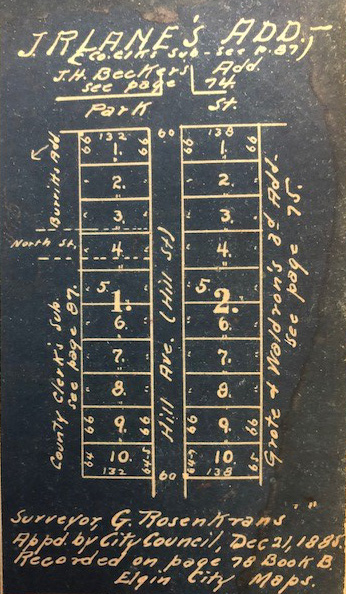 J.R. LANE'S ADD.
(Co. Clerk's Sub - see p. 87)
J.H. Beckers Add.
see page 74.
Park St.
66 132 66 60 66 138 66
1. 1.
2. 2.
3. 3.
4. 4.
5. 5.
1. 2.
6. 6.
7. 7.
8. 8.
66 9. 66 66 9. 66
64 10. 64-5 64-9 10. 65
132 60 138
Burritts Add.
North St.
County Clerk's Sub.
see page 87.
Hill Ave. (Hill St)
Grote & Waldron's 2d Add.
see page 75.
Surveyor, G. Rosenkrans " "
Appd. by City Council, Dec 21, 1885.
Recorded on page 78 Book B.
Elgin City Maps.